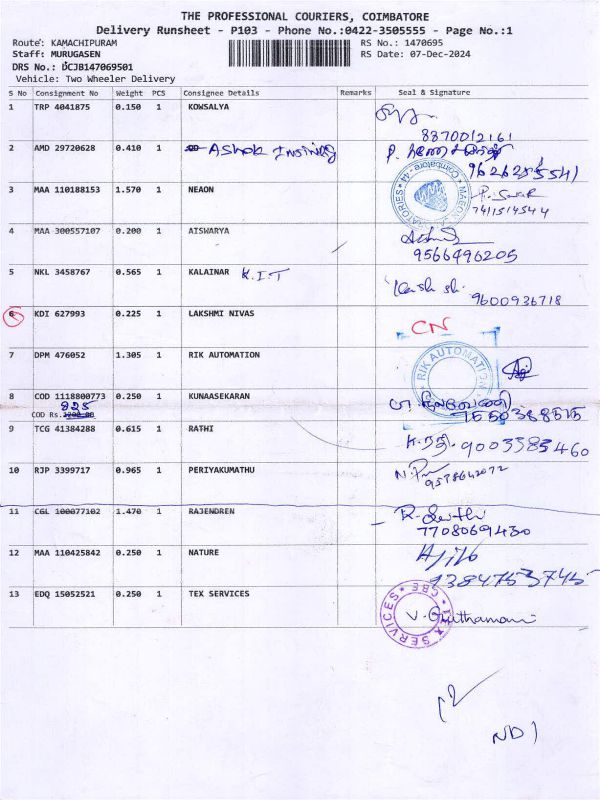 THE PROFESSIONAL COURIERS, COIMBATORE
Delivery Runsheet - P103 - Phone No.:0422-3505555 - Page No.:1
Route: KAMACHIPURAM RS No.: 1470695
Staff: MURUGASEN RS Date: 07-Dec-2024
DRS No.: DCJB147069501
Vehicle: Two Wheeler Delivery
S No Consignment No Weight PCS Consignee Details Remarks Seal & Signature
1 TRP 4041875 0.150 1 KOWSALYA
8870012161
2 AMD 29720628 0.410 1 Ashok
3 MAA 110188153 1.570 1 NEAON
4 MAA 300557107 0.200 1 AISWARYA
9566496205
5 NKL 3458767 0.565 1 KALAINAR K.I.T
9600936718
6 KDI 627993 0.225 1 LAKSHMI NIVAS CN
7 DPM 476052 1.305 1 RIK AUTOMATION RIK AUTOMATION
8 COD 1118800773 0.250 1 KUNAASEKARAN
COD Rs. 825
9 TCG 41384288 0.615 1 RATHI
10 RJP 3399717 0.965 1 PERIYAKUMATHU
11 CGL 100077102 1.470 1 RAJENDREN
7708069430
12 MAA 110425842 0.250 1 NATURE
13 EDQ 15052521 0.250 1 TEX SERVICES TEX SERVICES CBE
12
ND 1